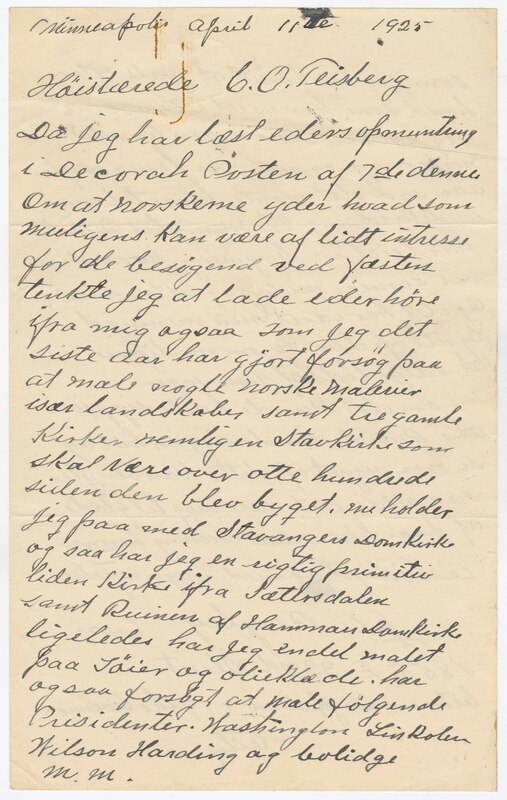 Minneapolis April 11te 1925
Höistærede C. O. Teisberg
Da jeg har læst eders opmuntring
i Decorah Posten af 7de dennes
om at norskerne yder hvad som
muligens kan være af lidt intresse
for de besøgend ved fæsten
tenkte jeg at lade eder höre
ifra mig ogsaa som jeg det
siste aar har gjort forsøg paa
at male nogle norske malerier
især landskaber samt tre gamle
Kirker nemlig en Stavkirke som
skal være over otte hundrede
siden den blev bygget, nu holder
jeg paa med Stavangers Domkirke
og saa har jeg en rigtig primitiv
liden Kirke ifra Sættersdalen
samt Ruinen af Hammar Domkirke
ligeledes har jeg endel malet
paa Töier og olieklæde. har
ogsaa forsøgt at male følgende
Presidenter. Washington Linkolen
Wilson Harding og Colidge
m. m.